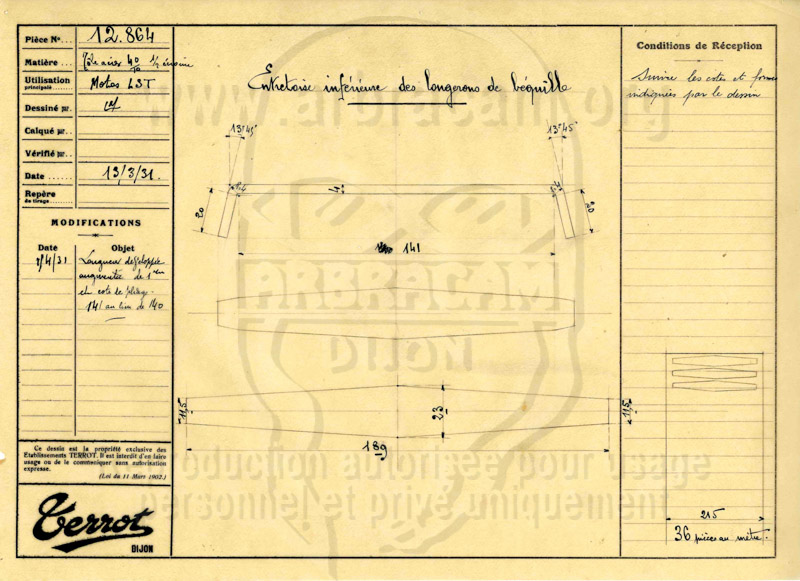 Pièce No... 12.864
Matière... Tôle acier 40/10 1/2
Utilisation principale... Motos LST
Dessiné pr.
Calqué pr..
Vérifié pr..
Date ...... 13/3/31.
Repère de tirage........
MODIFICATIONS
Date Objet
7/4/31 Longueur développée
augmentée de 1mm
et cote de pliage.
141 au lieu de 140
Ce dessin est la propriété exclusive des
Etablissements TERROT. Il est interdit d'en faire
usage ou de le communiquer sans autorisation
expresse.
(Loi du 11 Mars 1902.)
Terrot
DIJON
Entretoise inférieure des longerons de béquille
13°45'
13°45'
4
20
20
141
11,5
23
11,5
189
Conditions de Réception
Suivre les cotes et formes
indiquées par le dessin
215
36 pièces au mètre.
www.arbracam.org
ARBRACAM
DIJON
Reproduction autorisée pour usage
personnel et privé uniquement